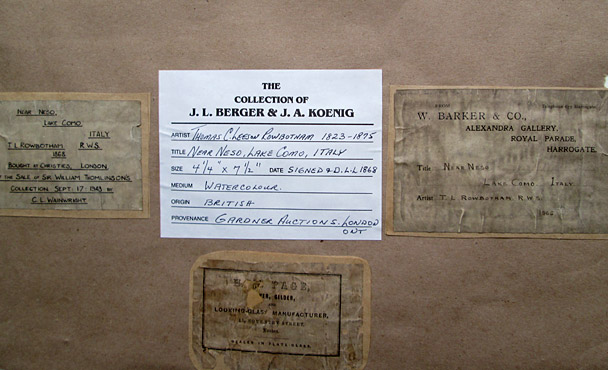 NEAR NESO.
LAKE COMO.
ITALY
T L ROWBOTHAM. R.W.S.
1868
BOUGHT AT CHRISTIES, LONDON.
AT THE SALE OF SIR WILLIAM TOMLINSON'S
COLLECTION SEPT. 17. 1943 BY
C. L. WAINWRIGHT.
THE
COLLECTION OF
J. L. BERGER & J. A. KOENIG
ARTIST THOMAS C. LEESON ROWBOTHAM 1823-1875
TITLE NEAR NESO, LAKE COMO, ITALY
SIZE 4 1/4" X 7 1/2" DATE SIGNED & D. L.L 1868
MEDIUM WATERCOLOUR.
ORIGIN BRITISH
PROVENANCE GARDNER AUCTIONS. LONDON
ONT
W. BARKER & CO.,
ALEXANDRA GALLERY,
ROYAL PARADE,
HARROGATE.
Title NEAR NESO
LAKE COMO. ITALY
Artist T. L. ROWBOTHAM R.W.S.
PAGE,
GILDER,
LOOKING-GLASS MANUFACTURER,
STREET,
DEALER IN PLATE GLASS.